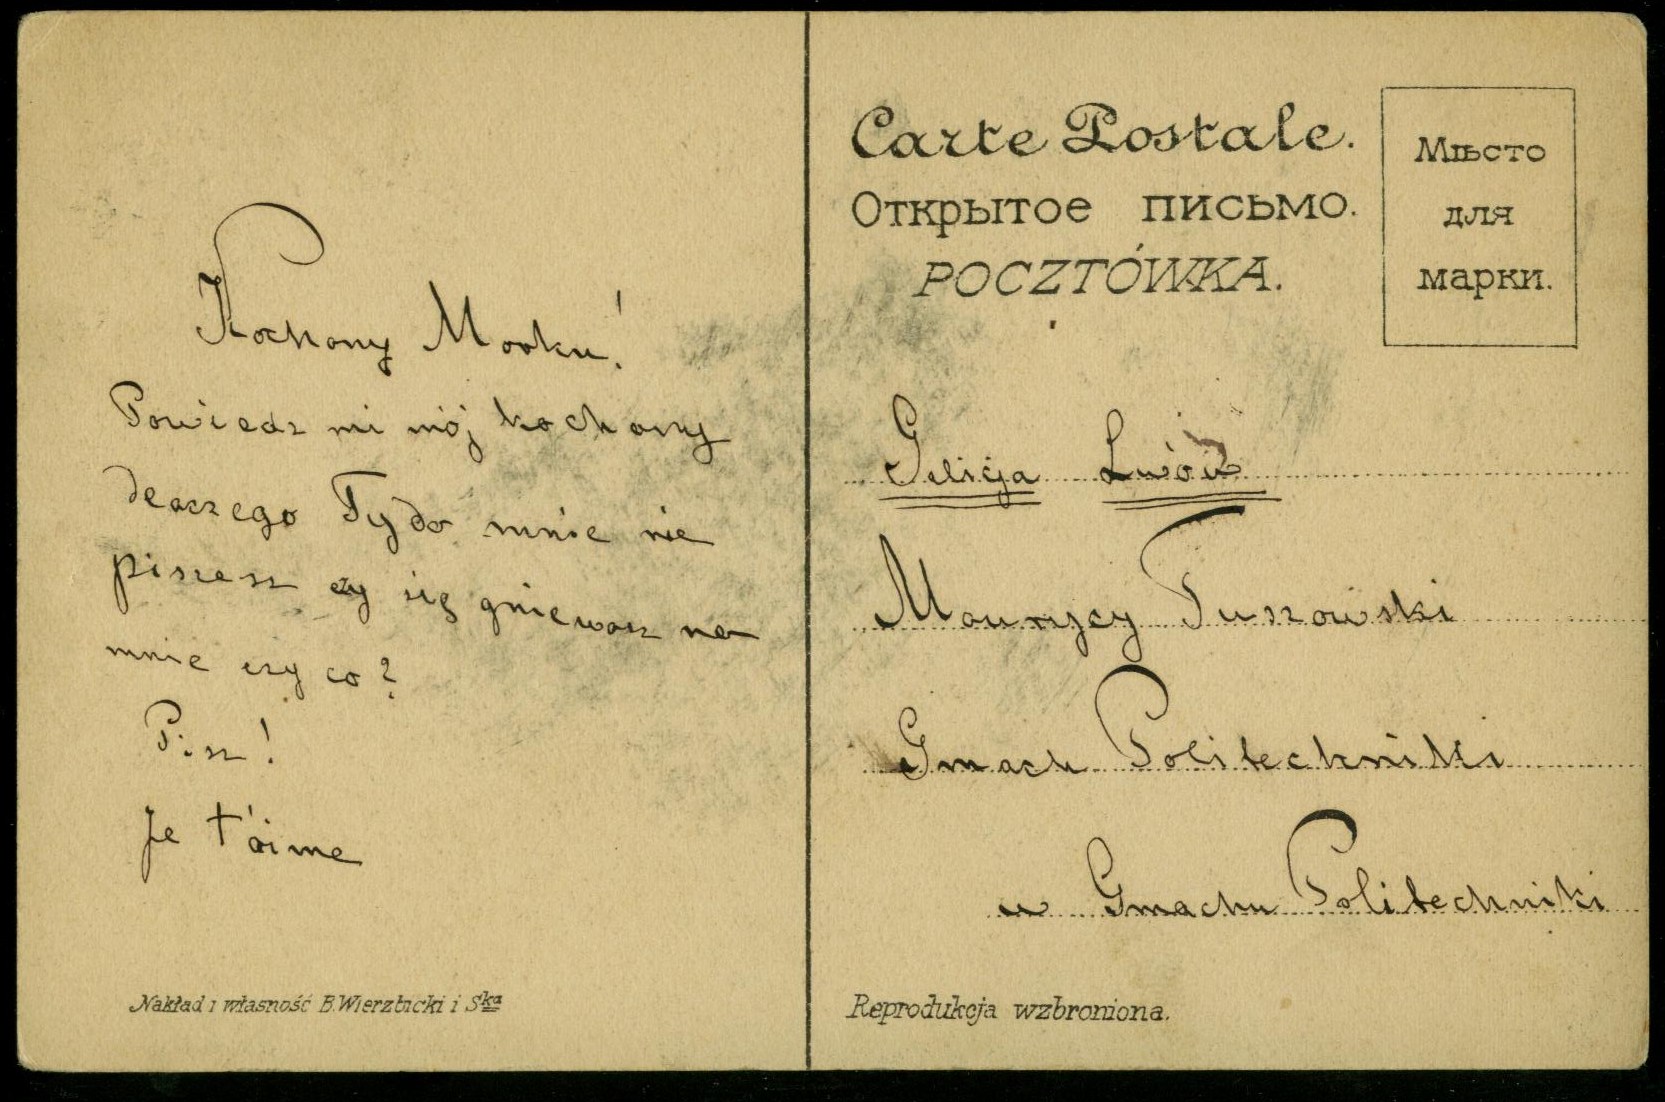 Kochany Morku!
Powiedz mi mój kochany
dlaczego Ty do mnie nie
piszesz czy się gniewasz na
mnie czy co?
Pisz!
Je t'aime
Nakład i własność B. Wierzbicki i Ska
Carte Postale.
Открытое письмо.
POCZTÓWKA.
Мѣсто
для
марки.
Galicja Lwów
Maurycy Tuszowski
Gmach Politechniki
w Gmachu Politechniki
Reprodukcja wzbroniona.